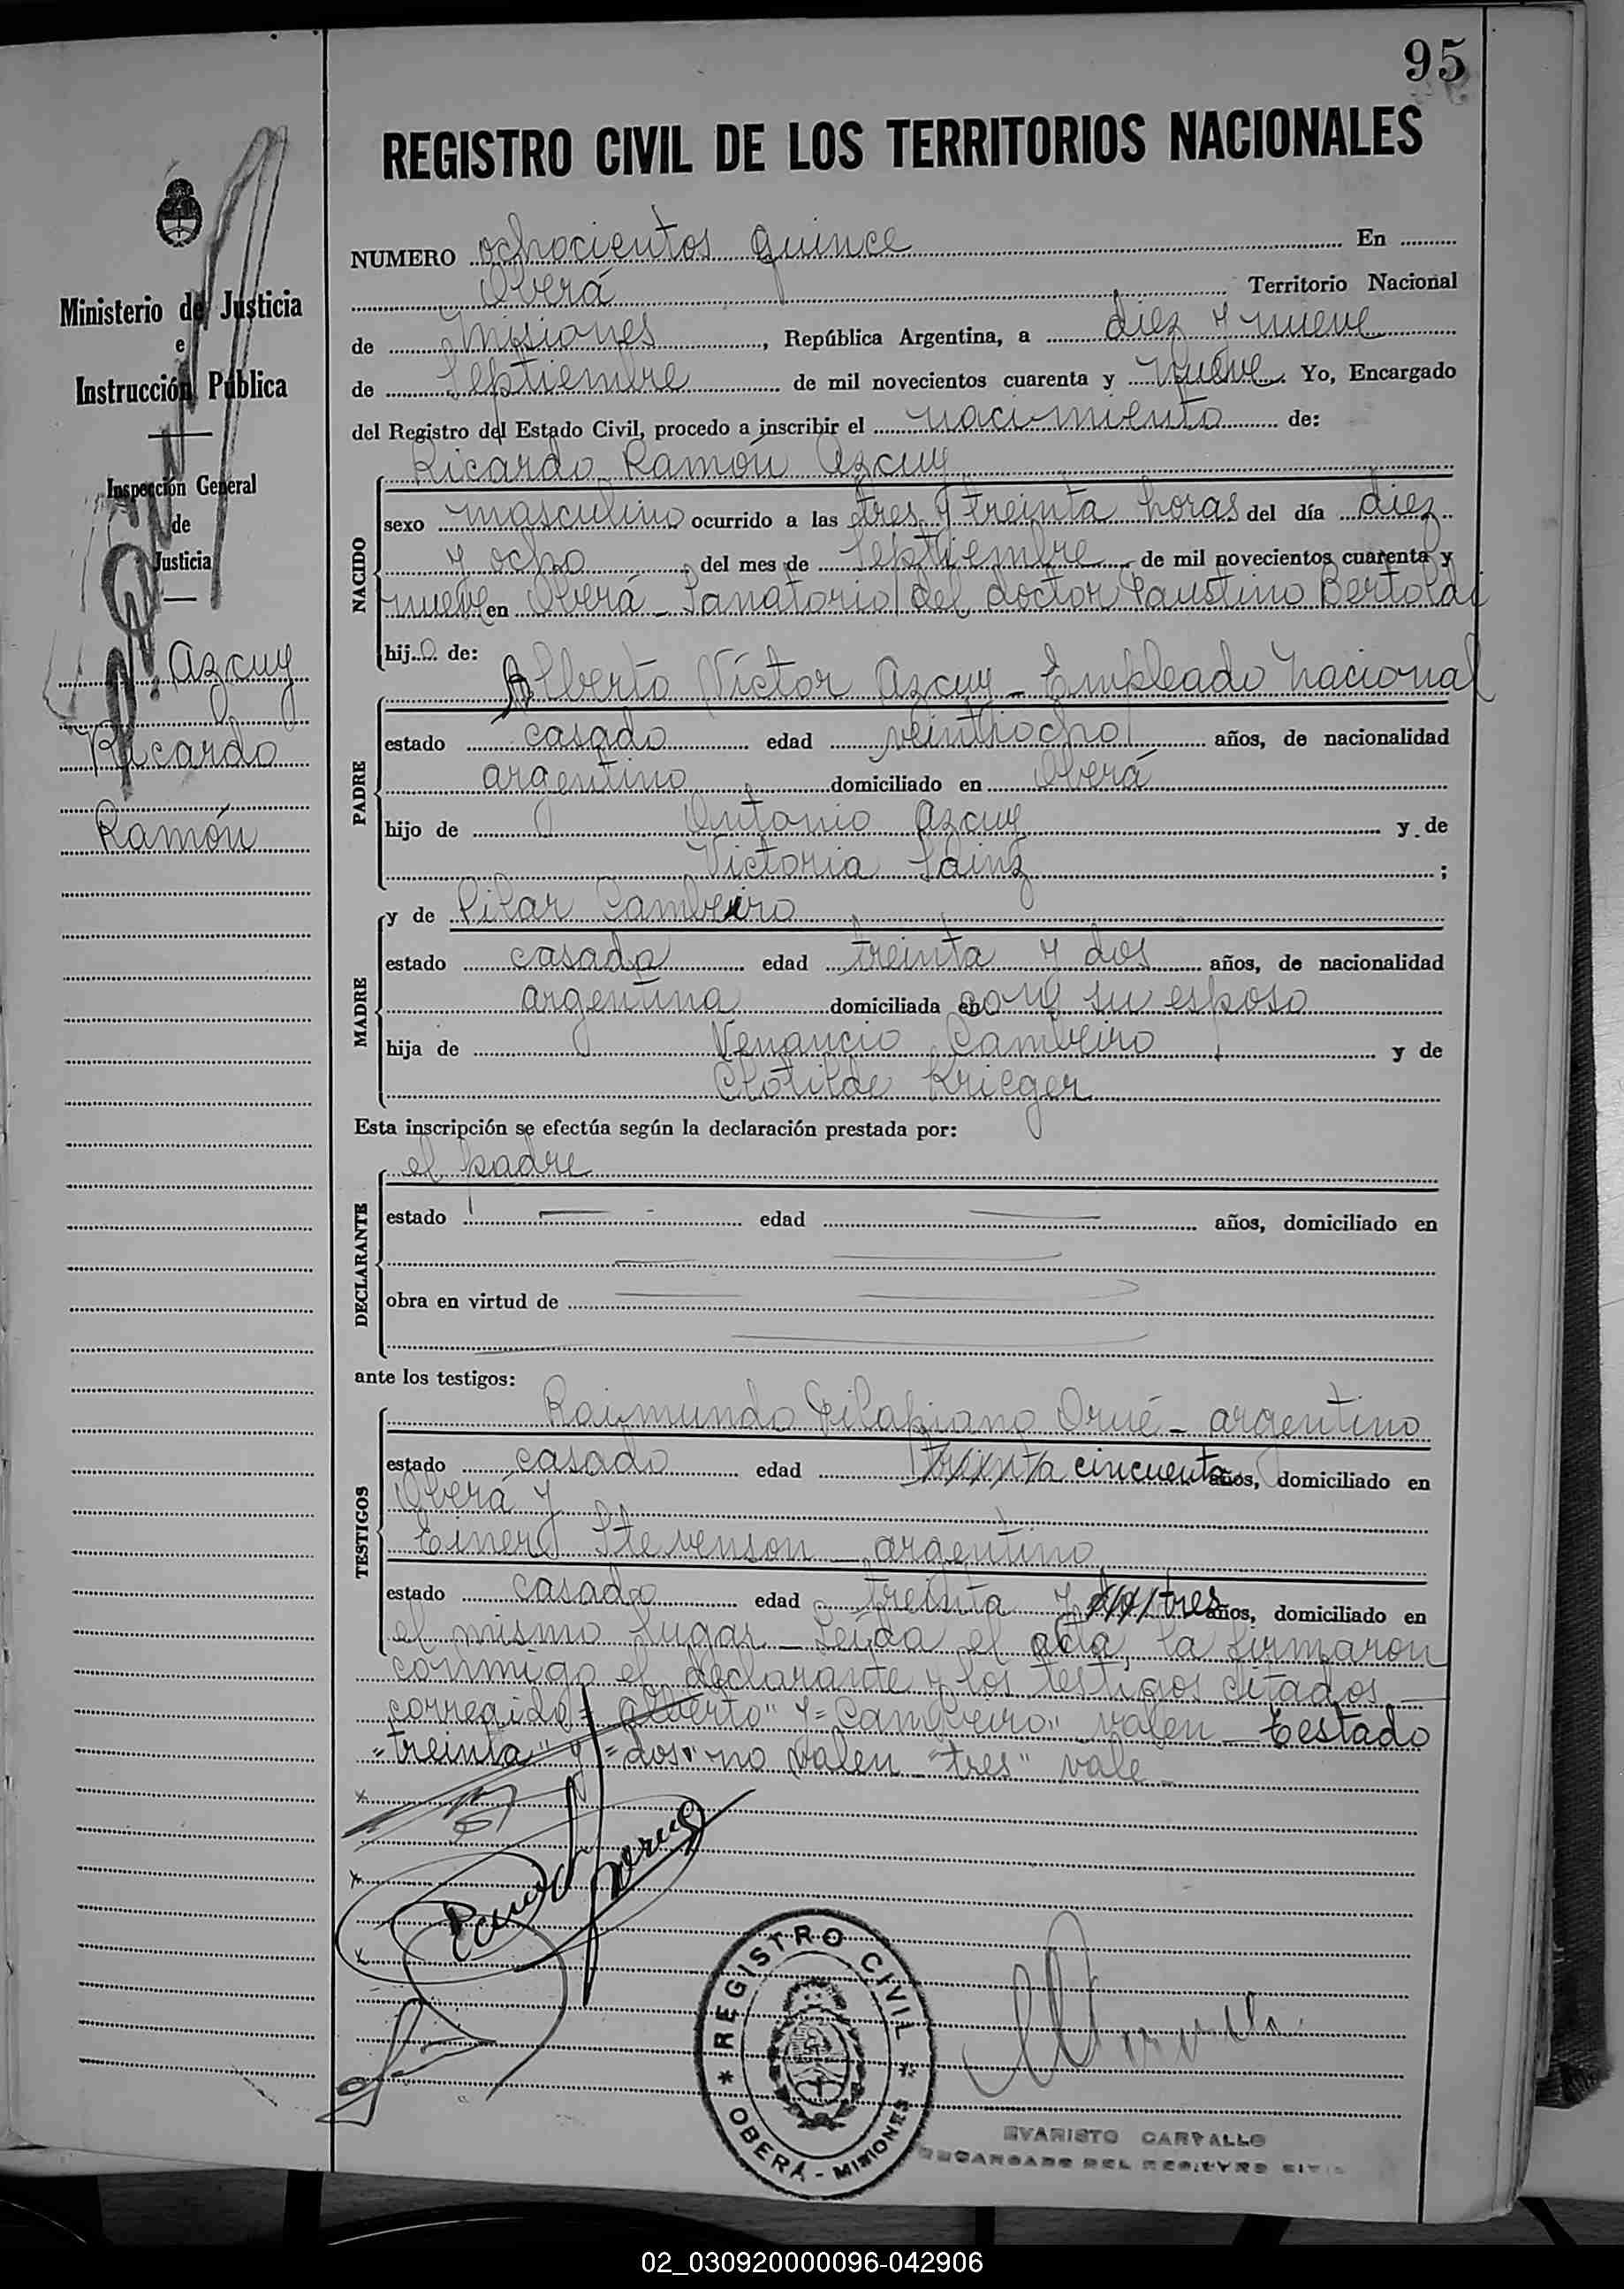 95
REGISTRO CIVIL DE LOS TERRITORIOS NACIONALES
Ministerio de Justicia
e
Instrucción Pública
Inspección General
de
Justicia
Azcuy
Ricardo
Ramón
NUMERO ochocientos quince En
Oberá Territorio Nacional
de Misiones, República Argentina, a diez y nueve
de Septiembre de mil novecientos cuarenta y nueve. Yo, Encargado
del Registro del Estado Civil, procedo a inscribir el nacimiento de:
Ricardo Ramón Azcuy
NACIDO
sexo masculino ocurrido a las tres y treinta horas del día diez
y ocho del mes de Septiembre de mil novecientos cuarenta y
nueve en Oberá - Sanatorio del doctor Faustino Bertoldi
hijo de:
Alberto Víctor Azcuy - Empleado Nacional
PADRE
estado casado edad veintiocho años, de nacionalidad
argentino domiciliado en Oberá
hijo de Antonio Azcuy y de
Victoria Sainz ;
y de Pilar Cambeiro
MADRE
estado casada edad treinta y dos años, de nacionalidad
argentina domiciliada en con su esposo
hija de Venancio Cambeiro y de
Clotilde Krieger
Esta inscripción se efectúa según la declaración prestada por:
el padre
DECLARANTE
estado edad años, domiciliado en
obra en virtud de
ante los testigos:
Raimundo Orué - argentino
TESTIGOS
estado casado edad treinta cincuenta años, domiciliado en
Oberá y
Einer Stevenson - argentino
estado casado edad treinta y dos tres años, domiciliado en
el mismo lugar - Leída el acta, la firmaron
conmigo el declarante y los testigos citados -
corregido = Alberto" y = Cambeiro" valen - Testado
"treinta" y = dos" no valen - "tres" vale -
REGISTRO CIVIL
OBERÁ - MISIONES
EVARISTO CARVALLO
ENCARGADO DEL REGISTRO CIVIL
02_030920000096-042906